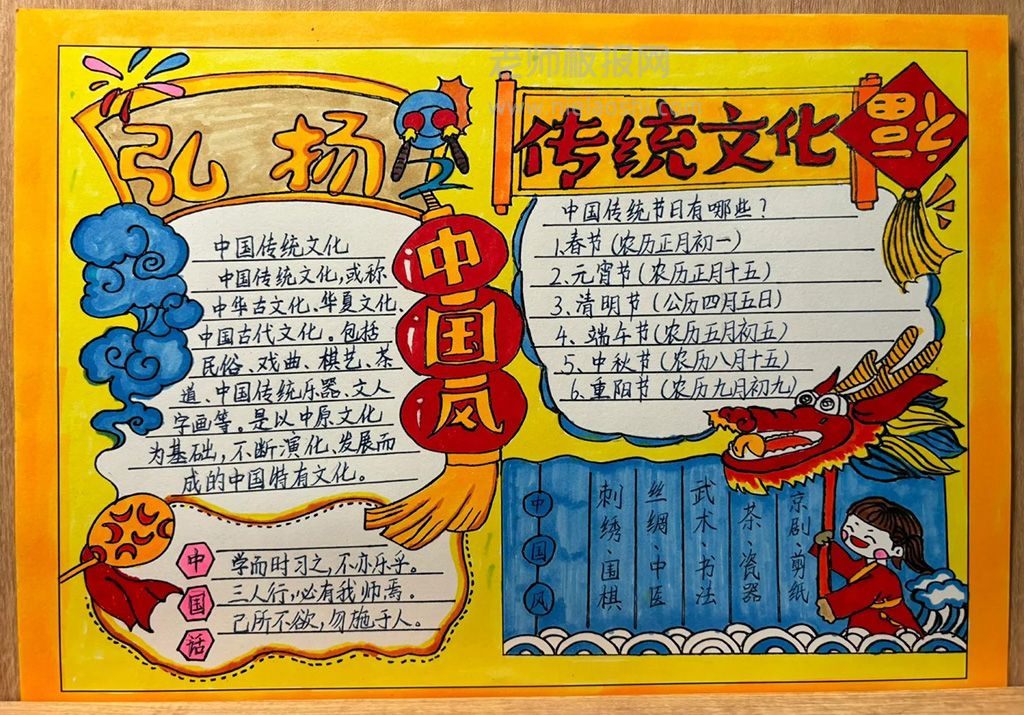 老师板报网
弘扬
传统文化
福
中国风
中国传统文化
中国传统文化,或称
中华古文化、华夏文化、
中国古代文化。包括
民俗、戏曲、棋艺、茶
道、中国传统乐器、文人
字画等。是以中原文化
为基础,不断演化、发展而
成的中国特有文化。
中国传统节日有哪些?
1.春节(农历正月初一)
2.元宵节(农历正月十五)
3.清明节(公历四月五日)
4、端午节(农历五月初五)
5、中秋节(农历八月十五)
6.重阳节(农历九月初九)
中国话
学而时习之,不亦乐乎。
三人行,必有我师焉。
己所不欲,勿施于人。
中国风
刺绣·围棋
丝绸·中医
武术·书法
茶·瓷器
京剧·剪纸